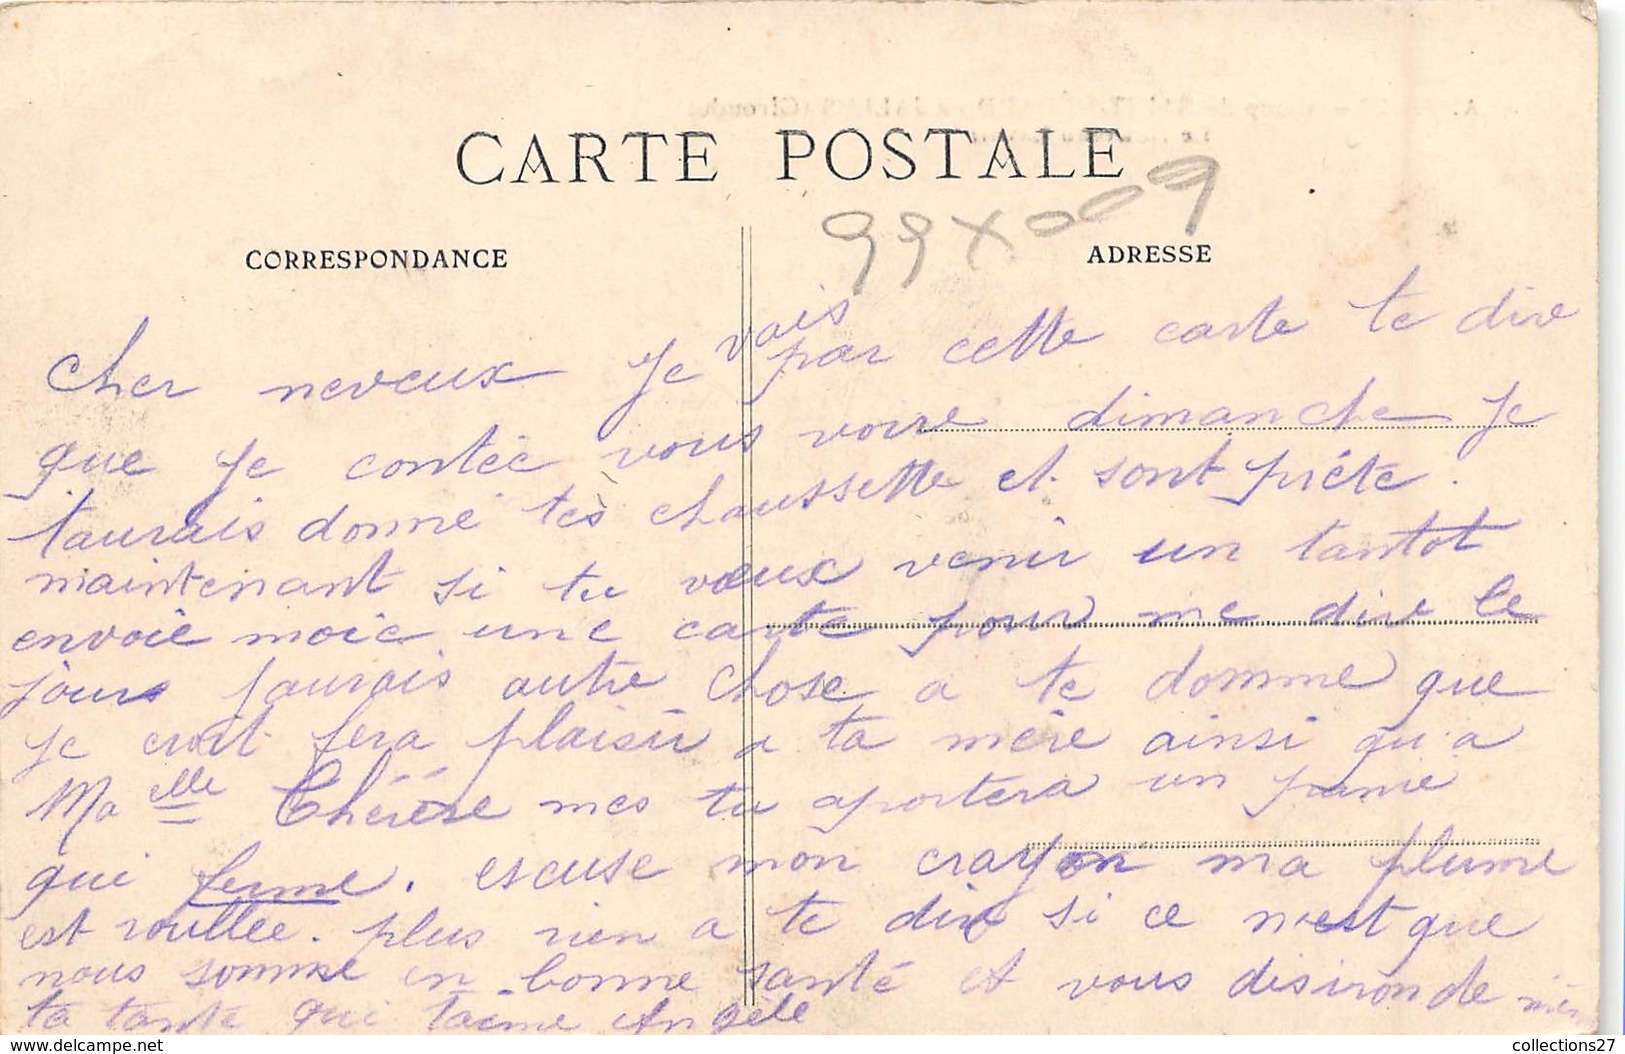 CARTE POSTALE
99X009
CORRESPONDANCE
ADRESSE
Cher neveux Je vais par cette carte te dire
que je contée vous voire dimanche Je
taurais donné tes chaussette et sont préte.
maintenant si tu voeux venir un tantot
envoie moie une carte pour me dire le
jours jaurais autre chose a te domme que
je croit fera plaisir a ta mère ainsi qu'a
Ma elle Thérèse mes tu aportera un panié
qui ferme. escuse mon crayon ma plume
est roullee. plus rien a te dire si ce n'est que
nous somme en bonne santé et vous disironde mêm
ta tante qui taime Angèle
collections27